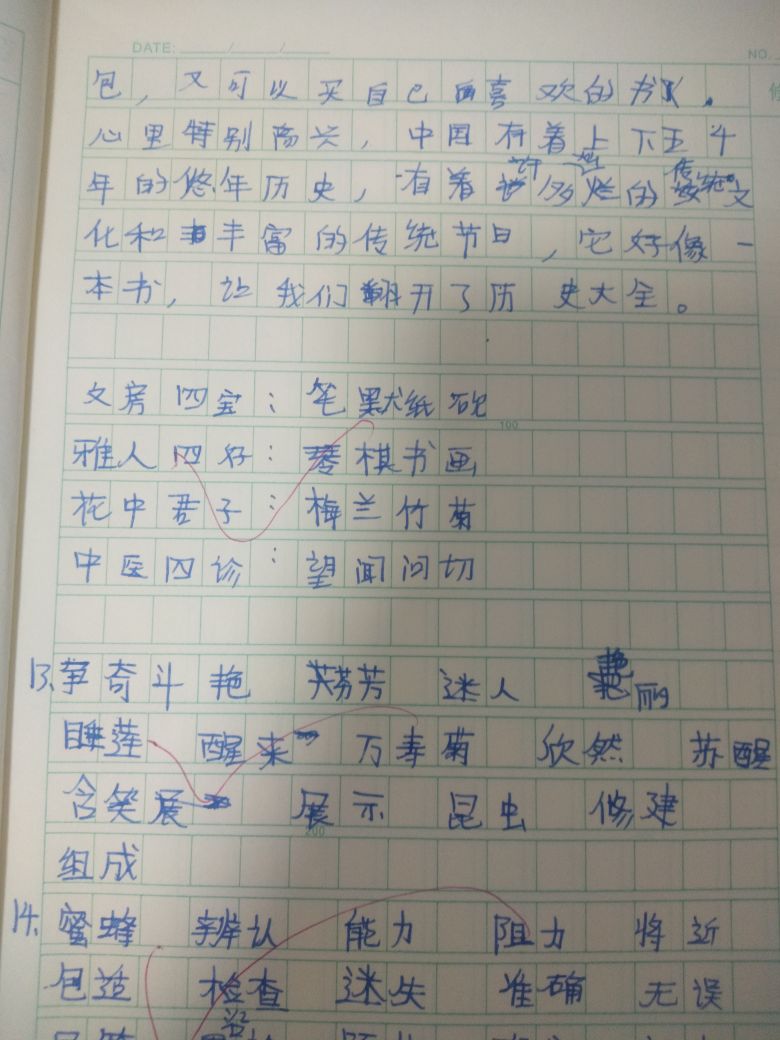 DATE: / /
NO.
包，又可以买自己喜欢的书。
心里特别高兴，中国有着上下五千
年的悠年历史，有着灿烂的传统文
化和丰富的传统节日，它好像一
本书，让我们翻开了历史大全。
文房四宝：笔默纸砚
100
雅人四好：琴棋书画
花中君子：梅兰竹菊
中医四诊：望闻问切
13、争奇斗艳 芬芳 迷人 艳丽
睡莲 醒来 万寿菊 欣然 苏醒
含笑 展示 昆虫 修建
200
组成
14、蜜蜂 辨认 能力 阻力 将近
包造 检查 迷失 准确 无误